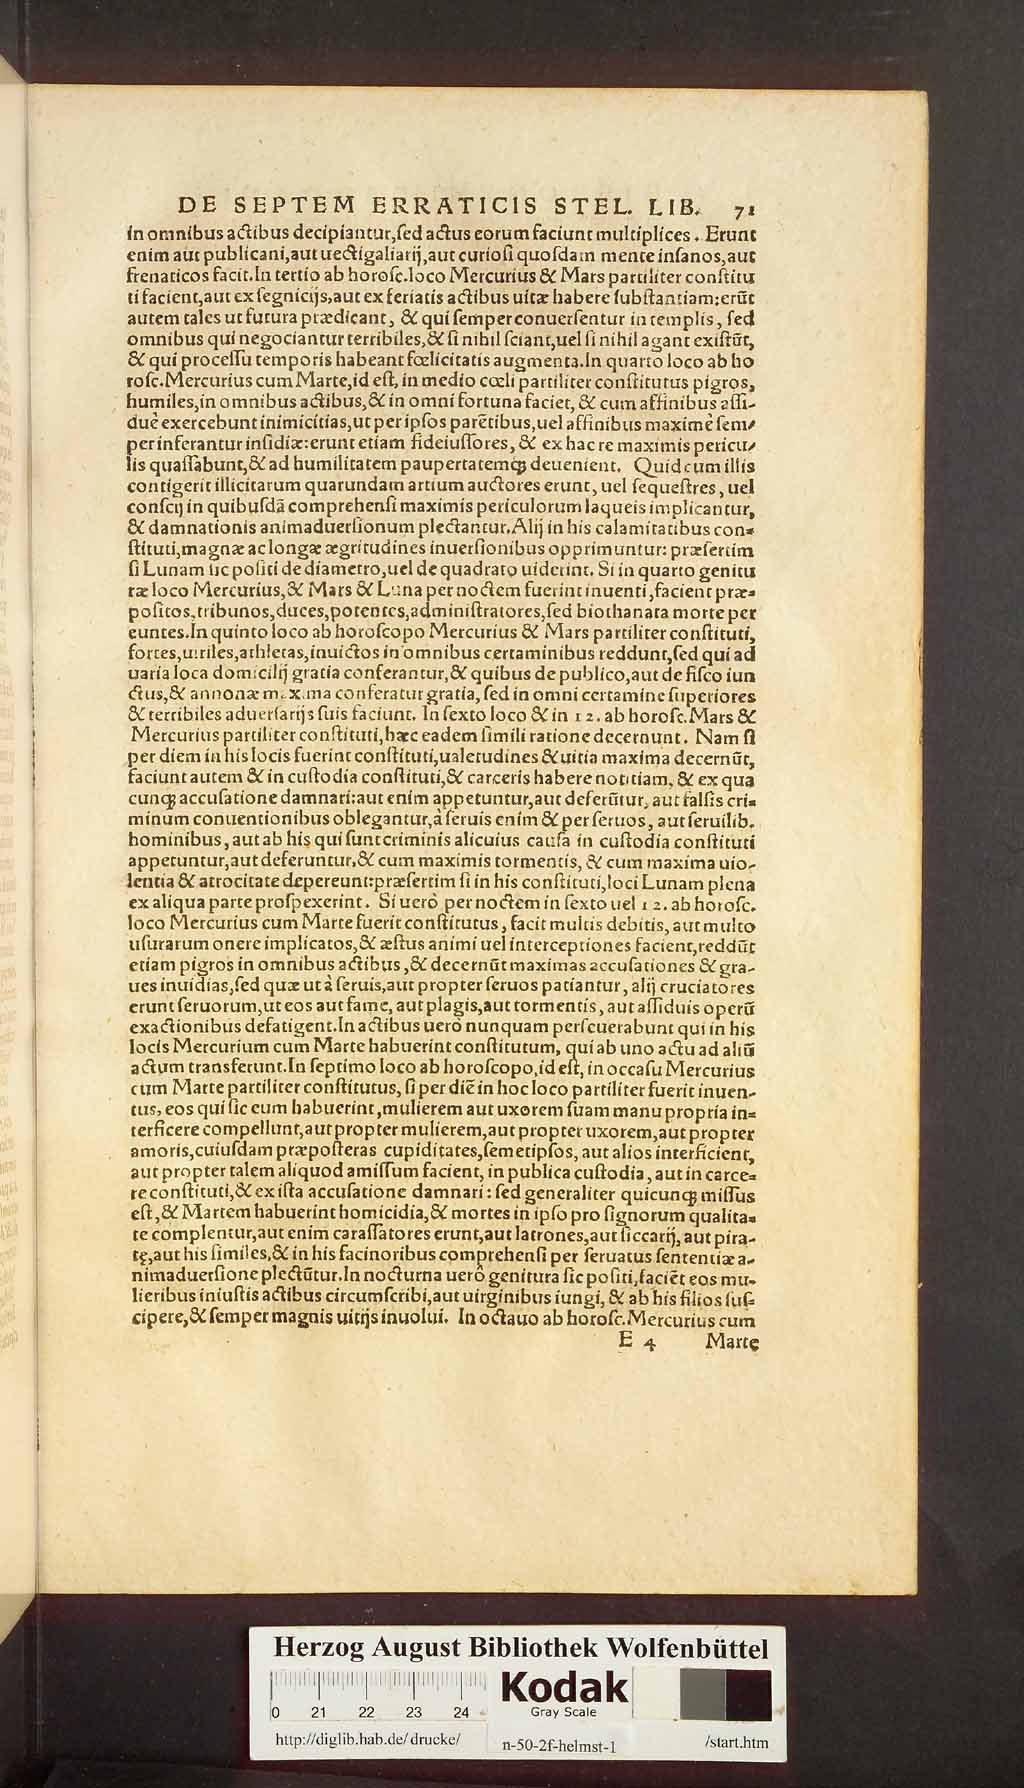 DE SEPTEM ERRATICIS STEL. LIB. 71
in omnibus actibus decipiantur,ſed actus eorum faciunt multiplices. Erunt
enim aut publicani,aut uectigaliarij,aut curioſi quoſdam mente inſanos,aut
frenaticos facit.In tertio ab horoſc.loco Mercurius & Mars partiliter conſtitu
ti facient,aut ex ſegnicijs,aut ex feriatis actibus uitæ habere ſubſtantiam:erūt
autem tales ut futura prædicant, & qui ſemper conuerſentur in templis, ſed
omnibus qui negociantur terribiles,& ſi nihil ſciant,uel ſi nihil agant exiſtūt,
& qui proceſſu temporis habeant fœlicitatis augmenta.In quarto loco ab ho
roſc.Mercurius cum Marte,id eſt, in medio cœli partiliter conſtitutus pigros,
humiles,in omnibus actibus,& in omni fortuna faciet, & cum affinibus aſſi-
duè exercebunt inimicitias,ut per ipſos parētibus,uel affinibus maximè ſem-
per inferantur inſidiæ:erunt etiam fideiuſſores, & ex hac re maximis pericu-
lis quaſſabunt,& ad humilitatem paupertatemq́; deuenient. Quid cum illis
contigerit illicitarum quarundam artium auctores erunt, uel ſequeſtres, uel
conſcij in quibuſdā comprehenſi maximis periculorum laqueis implicantur,
& damnationis animaduerſionum plectantur.Alij in his calamitatibus con=
ſtituti,magnæ ac longæ ægritudines inuerſionibus opprimuntur: præſertim
ſi Lunam ſic poſiti de diametro,uel de quadrato uiderint. Si in quarto genitu
ræ loco Mercurius,& Mars & Luna per noctem fuerint inuenti,facient præ=
poſitos,tribunos,duces,potentes,adminiſtratores,ſed biothanata morte per
euntes.In quinto loco ab horoſcopo Mercurius & Mars partiliter conſtituti,
fortes,uiriles,athletas,inuictos in omnibus certaminibus reddunt,ſed qui ad
uaria loca domicilij gratia conferantur,& quibus de publico,aut de fiſco iun
ctus,& annonæ maxima conferatur gratia, ſed in omni certamine ſuperiores
& terribiles aduerſarijs ſuis faciunt. In ſexto loco & in 12. ab horoſc.Mars &
Mercurius partiliter conſtituti,hæc eadem ſimili ratione decernunt. Nam ſi
per diem in his locis fuerint conſtituti,ualetudines & uitia maxima decernūt,
faciunt autem & in cuſtodia conſtituti,& carceris habere notitiam, & ex qua
cunq; accuſatione damnari:aut enim appetuntur,aut deferūtur, aut falſis cri=
minum conuentionibus oblegantur,à ſeruis enim & per ſeruos, aut ſeruilib.
hominibus, aut ab his qui ſunt criminis alicuius cauſa in cuſtodia conſtituti
appetuntur,aut deferuntur,& cum maximis tormentis, & cum maxima uio-
lentia & atrocitate depereunt:præſertim ſi in his conſtituti,loci Lunam plena
ex aliqua parte proſpexerint. Si uerò per noctem in ſexto uel 12. ab horoſc.
loco Mercurius cum Marte fuerit conſtitutus, facit multis debitis, aut multo
uſurarum onere implicatos,& æſtus animi uel interceptiones facient,reddūt
etiam pigros in omnibus actibus,& decernūt maximas accuſationes & gra-
ues inuidias,ſed quæ ut à ſeruis,aut propter ſeruos patiantur, alij cruciatores
erunt ſeruorum,ut eos aut fame, aut plagis,aut tormentis, aut aſſiduis operū
exactionibus defatigent.In actibus uerò nunquam perſeuerabunt qui in his
locis Mercurium cum Marte habuerint conſtitutum, qui ab uno actu ad aliū
actum transferunt.In ſeptimo loco ab horoſcopo,id eſt, in occaſu Mercurius
cum Marte partiliter conſtitutus, ſi per diē in hoc loco partiliter fuerit inuen-
tus, eos qui ſic eum habuerint,mulierem aut uxorem ſuam manu propria in=
terficere compellunt,aut propter mulierem,aut propter uxorem,aut propter
amoris,cuiuſdam præpoſteras cupiditates,ſemetipſos, aut alios interficient,
aut propter talem aliquod amiſſum facient, in publica cuſtodia, aut in carce=
re conſtituti,& ex iſta accuſatione damnari: ſed generaliter quicunq; miſſus
eſt,& Martem habuerint homicidia,& mortes in ipſo pro ſignorum qualita=
te complentur,aut enim caraſſatores erunt,aut latrones,aut ſiccarij, aut pira-
tę,aut his ſimiles,& in his facinoribus comprehenſi per ſeruatus ſententiæ a-
nimaduerſione plectūtur.In nocturna uerò genitura ſic poſiti,faciēt eos mu-
lieribus iniuſtis actibus circumſcribi,aut uirginibus iungi, & ab his filios ſuſ=
cipere,& ſemper magnis uitijs inuolui. In octauo ab horoſc.Mercurius cum
E 4 Marte
Herzog August Bibliothek Wolfenbüttel
0 21 22 23 24
Kodak
Gray Scale
http://diglib.hab.de/drucke/ n-50-2f-helmst-1 /start.htm